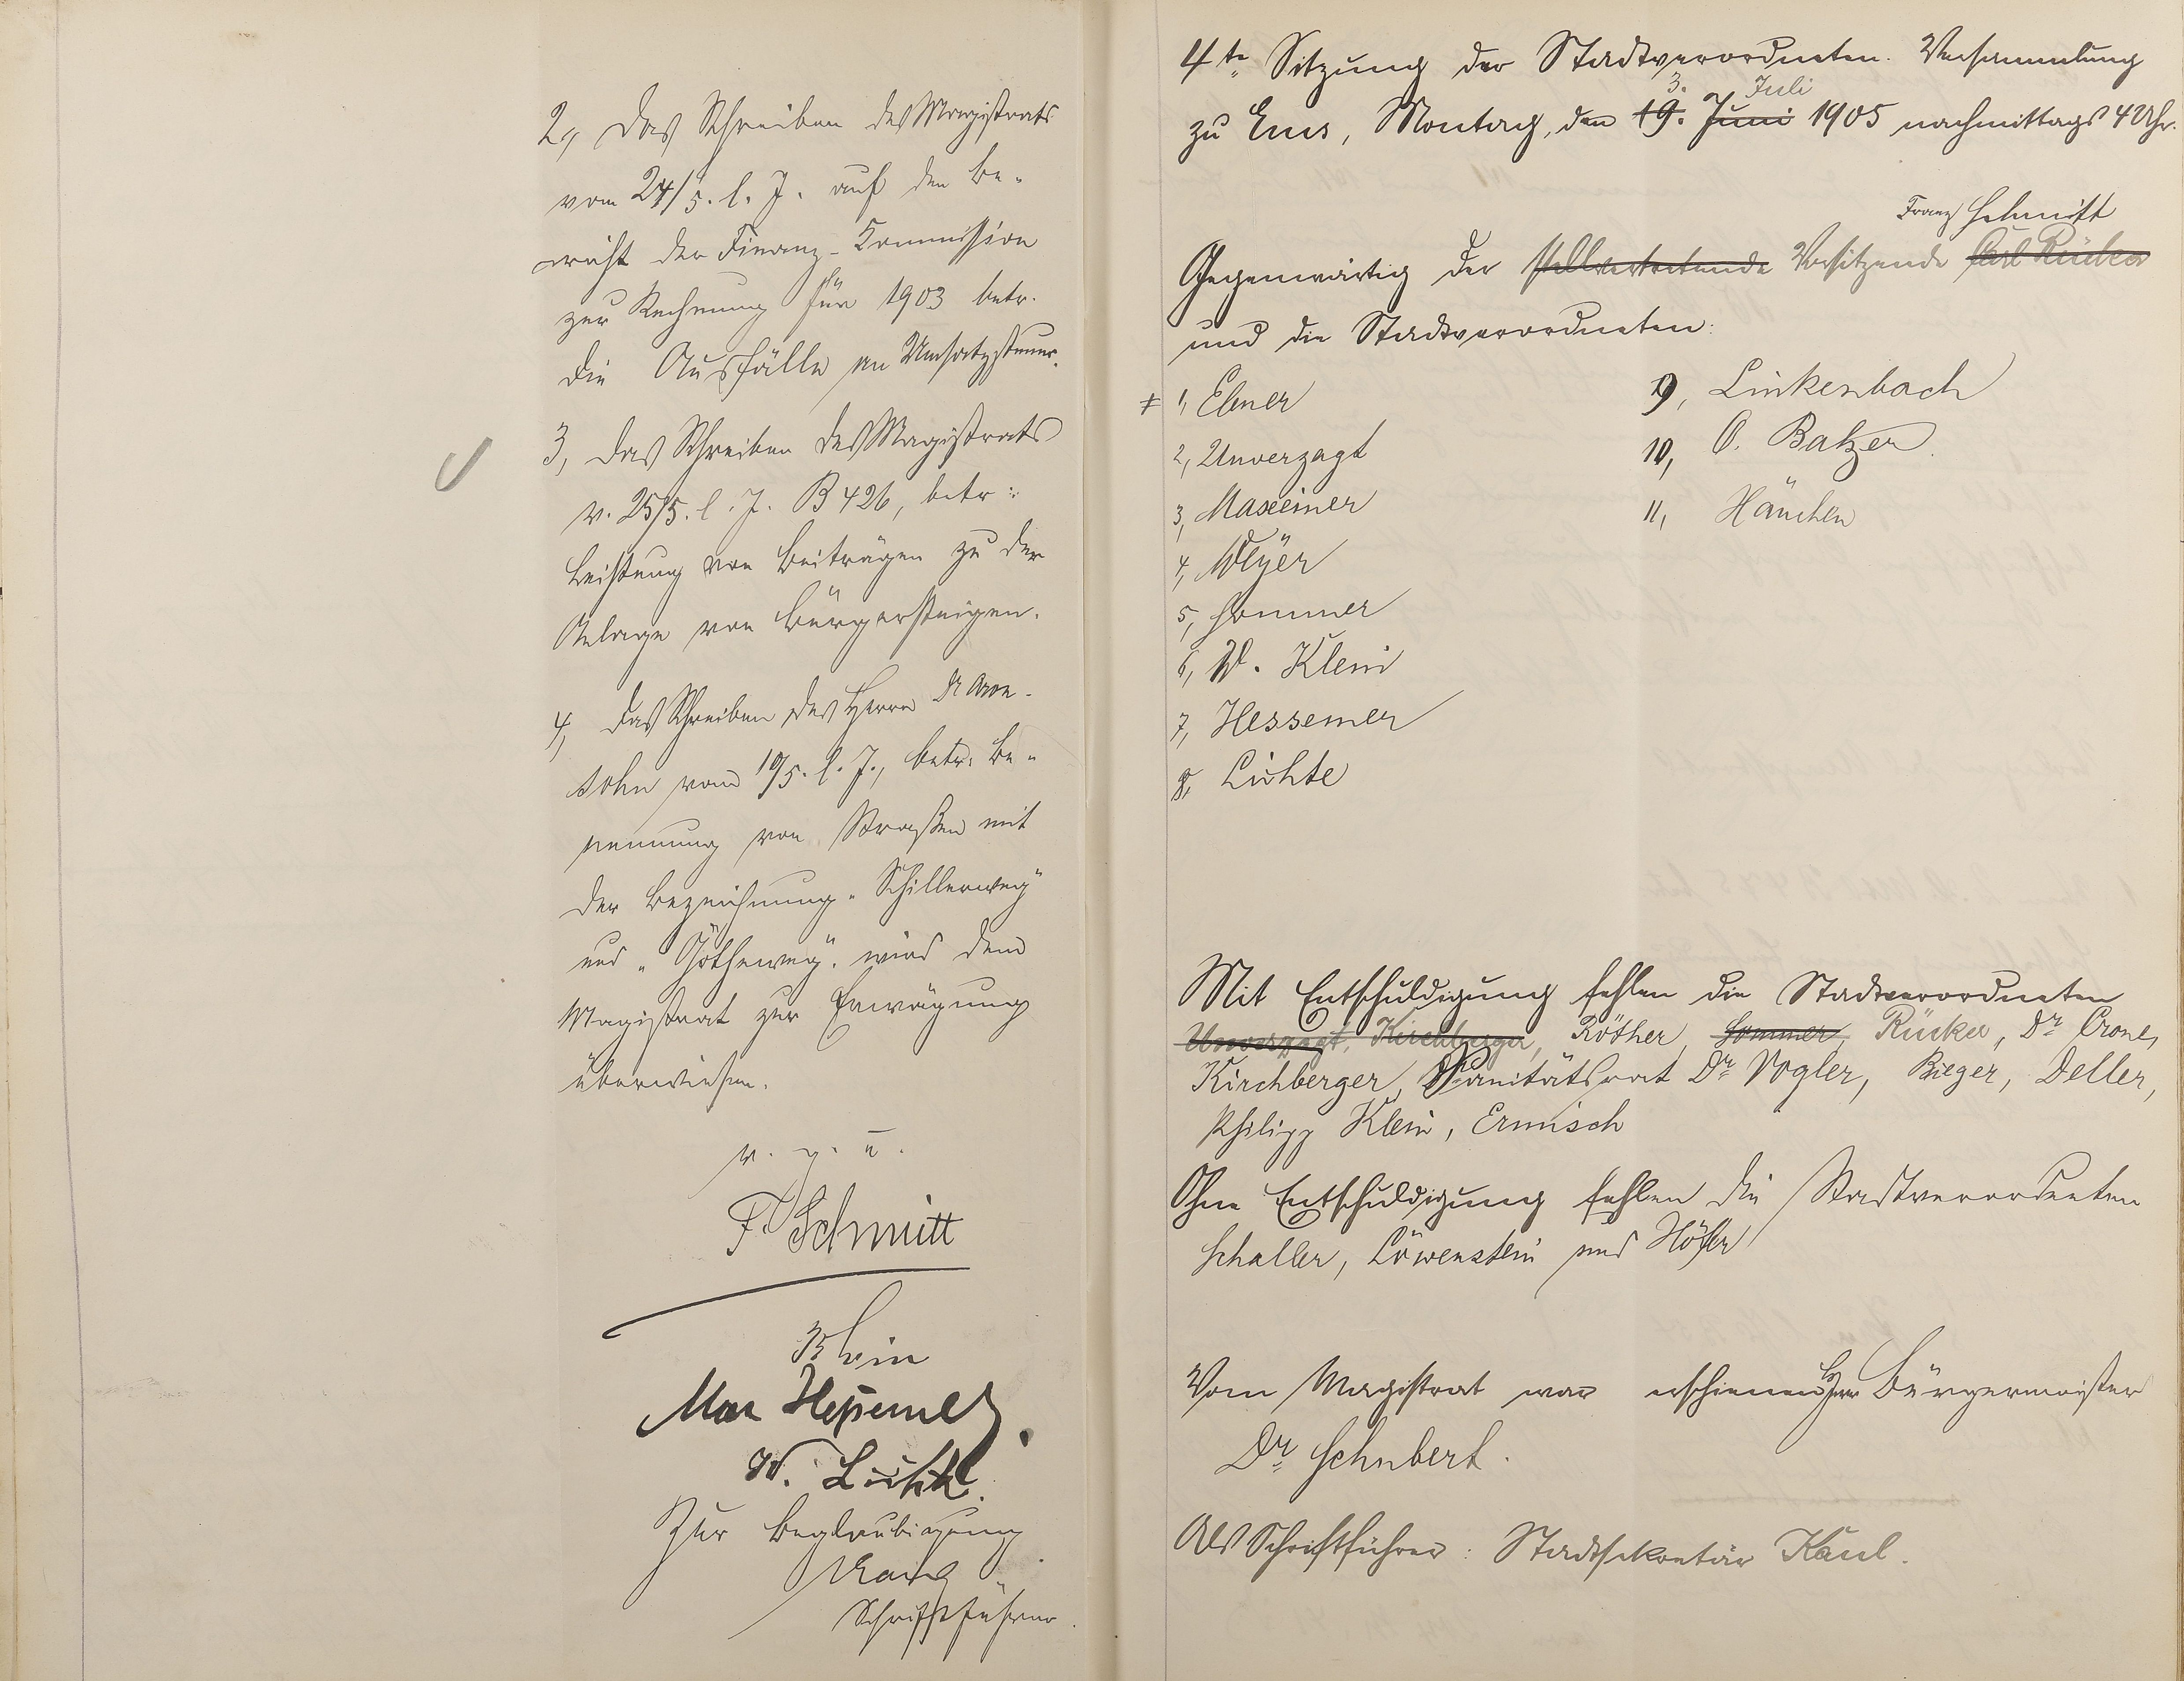 2., Das Schreiben des Magistrats
vom 24/5. l. J. auf den Be-
richt der Finanz-Kommission
zur Rechnung für 1903 betr.
die Ausfälle an Umsatzsteuer.
3, Das Schreiben des Magistrats
v. 25/5. l. J. B 426, betr:
Leistung von Beiträgen zu der
Anlage von Bürgersteigen.
4, Das Schreiben des Herrn Dr Aron-
sohn vom 10/5. l. J., betr. Be-
nennung von Straßen mit
der Bezeichnung „Schillerweg"
und „Götheweg". wird dem
Magistrat zur Erwägung
überwiesen.
v. g. u.
F. Schmitt
Klein
Max Hessemer
W. Lichte
Zur Beglaubigung
Kaul
Schriftführer.
4te Sitzung der Stadtverordneten-Versammlung
3. Juli
zu Ems, Montag, den 19. Juni 1905 nachmittags 4 Uhr.
Franz Schmitt
Gegenwärtig der stellvertretende Vorsitzende Carl Rücker
und die Stadtverordneten:
1, Ebner
2, Unverzagt
3, Maxeiner
4, Weyer
5, Sommer
6, W. Klein
7, Hessemer
8, Lichte
9, Linkenbach
10, O. Balzer
11, Häuchen
Mit Entschuldigung fehlen die Stadtverordneten
Unverzagt, Kirchberger, Röther, Sommer, Rücker, Dr Crone,
Kirchberger, Sanitätsrat Dr Vogler, Bieger, Deller,
Philipp Klein, Ermisch
Ohne Entschuldigung fehlen die Stadtverordneten
Schaller, Löwenstein und Höfer
Vom Magistrat war erschienen Herr Bürgermeister
Dr Schubert.
Als Schriftführer: Stadtsekretär Kaul.